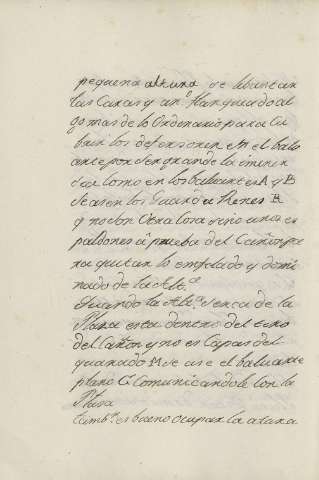 pequeña altura se lebantan
las Caras y an. flanqueado al
go mas de lo Ordenario para Cu
brir los defensores en el balu
arte por ser grande la eminen
cia como en los baluartes A y B
se acen los Guarda Renes R
q no son Otra Cosa sino unos es
paldones à prueba del Cañon pa
ra quitar lo enfilado y domi
nado de la Alt.ª
Quando la Alt.ª serca de la
Plaza esta dentro del tiro
del Cañon y no es Capas del
quarnado M se ase el baluarte
plano G Comunicandole con la
Plasa
tamb.n es bueno ocupar la altura